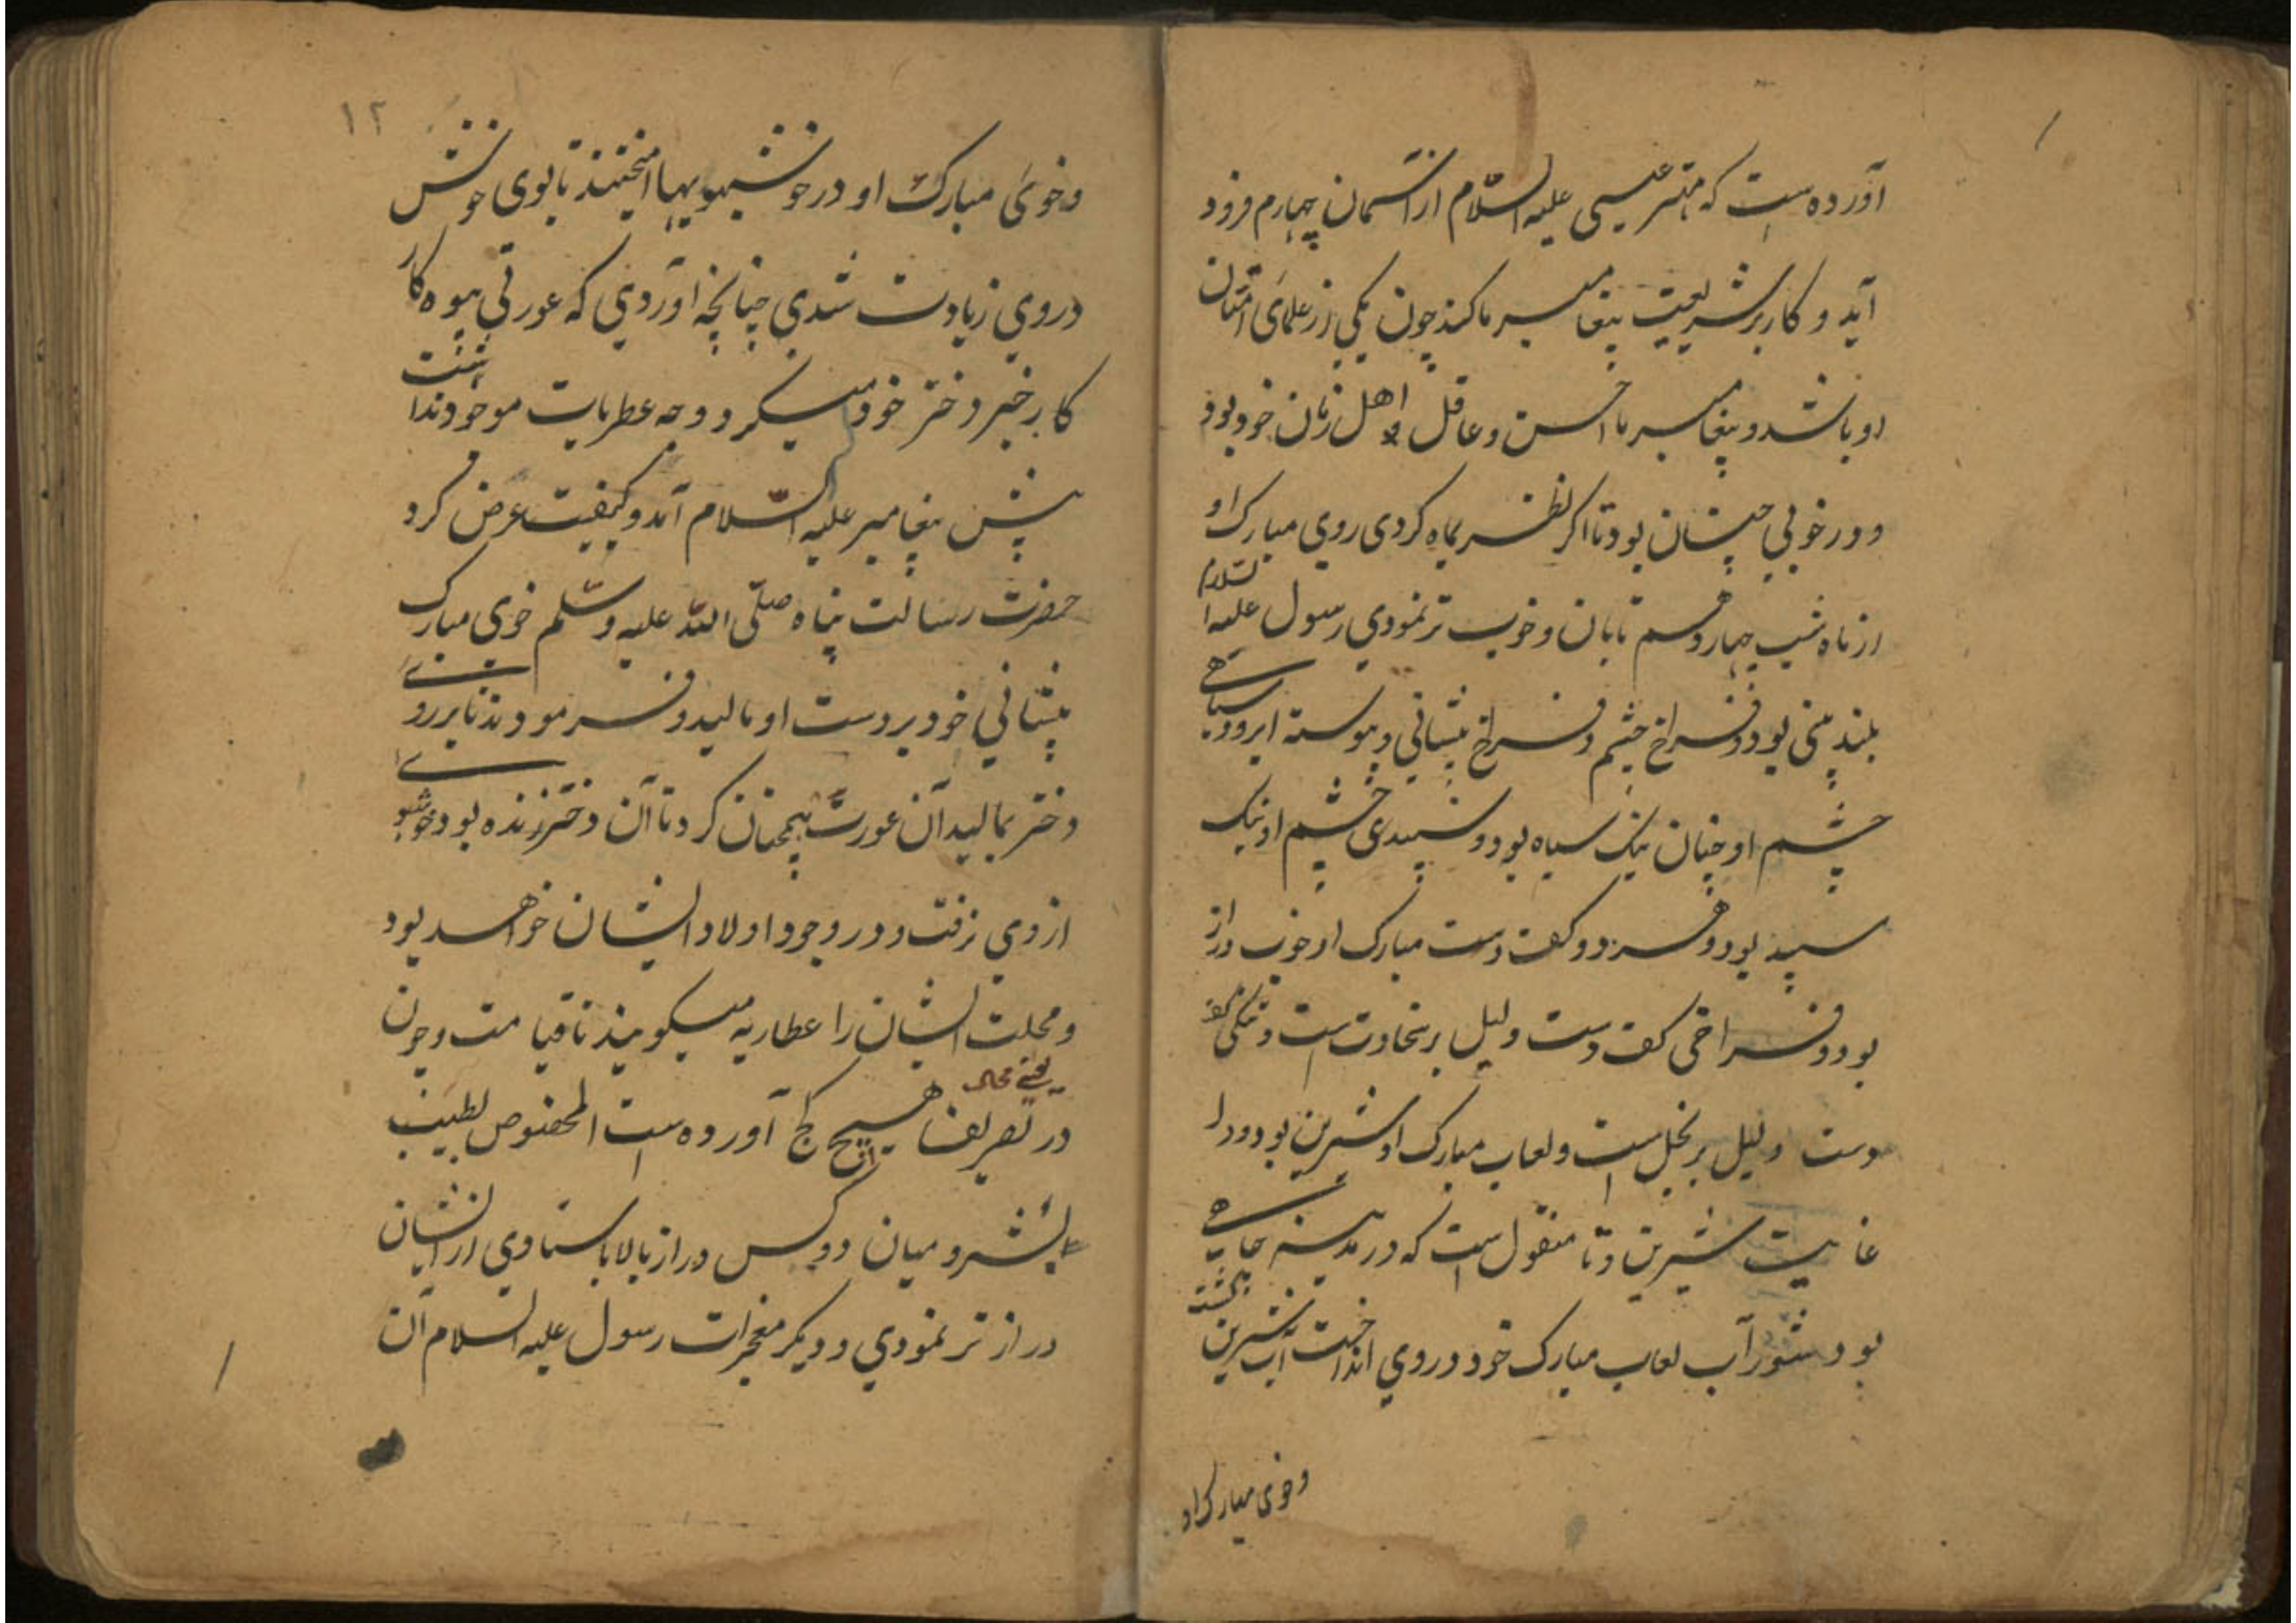 آورده است که مهتر عیسی علیه السّلام از آسمان چهارم فرود
آید و کار بر شریعت پیغامبر ما کند چون یکی از علمای امتان
او باشد و پیغامبر ما احسن و عاقل اهل زمان خود بود
و در خوبی چنان بود تا اگر نظر بماه کردی روی مبارک او
از ماه شب چهاردهم تابان و خوب تر نمودی رسول علیه السلام
بلند بینی بود و فراخ چشم و فراخ پیشانی و پیوسته ابرو و سیاهی
چشم او چنان نیک سیاه بود و سپیدی چشم او نیک
سپید بود و هر دو کف دست مبارک او خوب دراز
بود و فراخی کف دست دلیل بر سخاوت است و تنگی کف
دست دلیل بر بخل است و لعاب مبارک او شیرین بود و در
غایت شیرین و تا منقول است که در مدینه چاهی
بود شور آب لعاب مبارک خود در وی انداخت آب شیرین گشت
وخوی مبارک او
۱۲
وخوی مبارک او در خوشبویها امیختند تا بوی خوش
در وی زیادت شدی چنانچه آوردی که عورتی بیوه کار
کار خیر دختر خود میکرد و وجه عطریات موجود نداشت
پیش پیغامبر علیه السّلام آمد و کیفیت عرض کرد
حضرت رسالت پناه صلّی الله علیه وسلّم خوی مبارک
پیشانی خود بر دست او مالید و فرمودند تا بر روی
دختر بمالید آن عورت همچنان کرد تا آن دختر زنده بود خوشبو
از وی نرفت و در وجود اولاد ایشان خواهد بود
و محلت ایشان را عطاریه میگویند تا قیامت و چون
یعنی محال
در تعریف هیچ کج آورده است المخصوص بطیب
میان دو کس دراز بالا با ستادی از ایشان
دراز تر نمودی و دیگر معجزات رسول علیه السلام آن